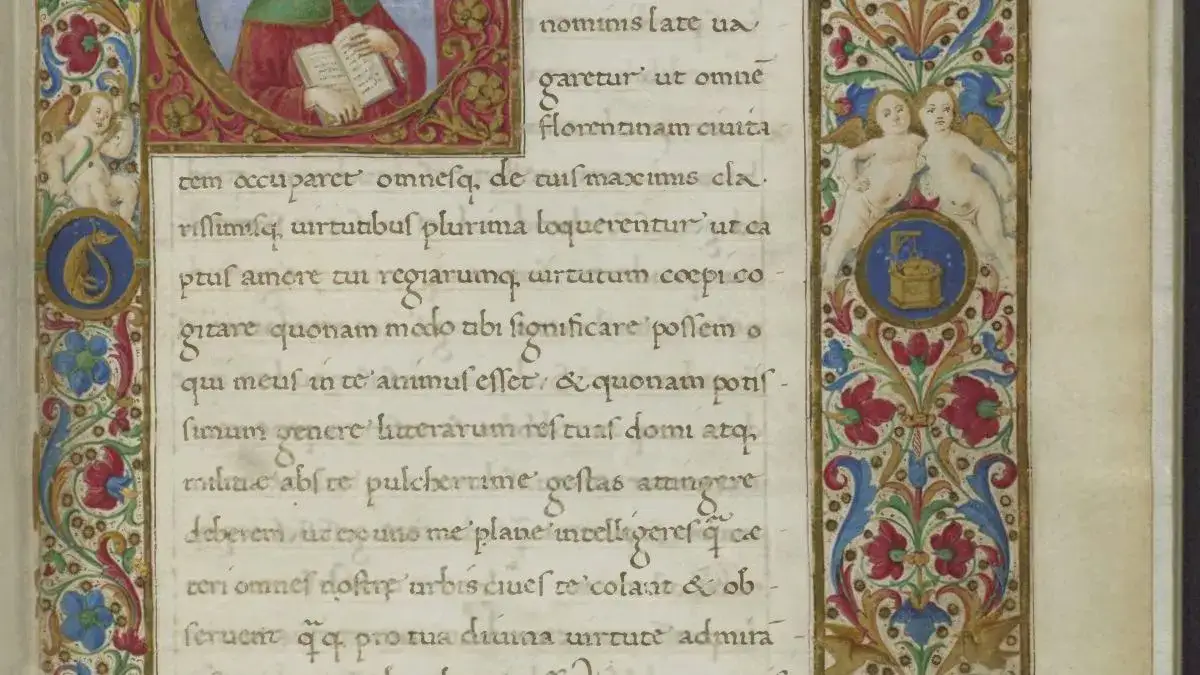 nominis late ua
garetur ut omnē
florentinam ciuita
tem occuparet omnesq; de tuis maximis cla
rissimisq; uirtutibus plurima loquerentur ut ca
ptus amore tui regiarumq; uirtutum coepi co
gitare quonam modo tibi significare possem o
qui meus in te animus esset, & quonam potis
simum genere litterarum res tuas domi atq;
militiæ abs te pulcherrime gestas attingere
deberem, ut ex uno me plane intelligeres q̄ cæ
teri omnes nostrę urbis ciues te colant & ob
seruent q̄q; pro tua diuina uirtute admirā